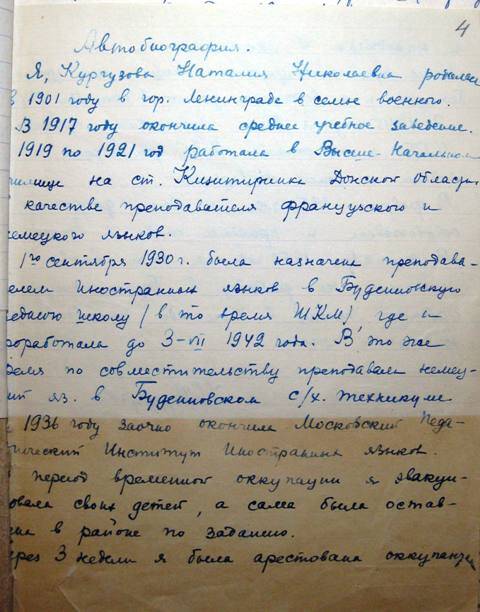 4
Автобиография.
Я, Кургузова Наталия Николаевна родилась
в 1901 году в гор. Ленинграде в семье военного.
В 1917 году окончила среднее учебное заведение.
1919 по 1921 год работала в Высше-Начальном
чилище на ст. Кизитеринка Донской области
качестве преподавателя французского и
емецкого языков.
1го сентября 1930 г. была назначена преподава-
елем Иностранных языков в Буденновскую
реднюю школу (в то время ШКМ), где и
роработала до 3-VII 1942 года. В это же
ремя по совместительству преподавала немец-
ий яз. в Буденновском с/х. техникуме
1936 году заочно окончила Московский Педа-
гический Институт Иностранных языков.
период временной оккупации я эвакуи-
овала своих детей, а сама была остав-
ена в районе по заданию.
ерез 3 недели я была арестована оккупанта